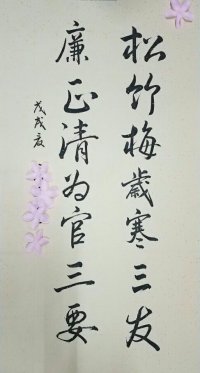 松竹梅歲寒三友
廉正清为官三要
戊戌夏